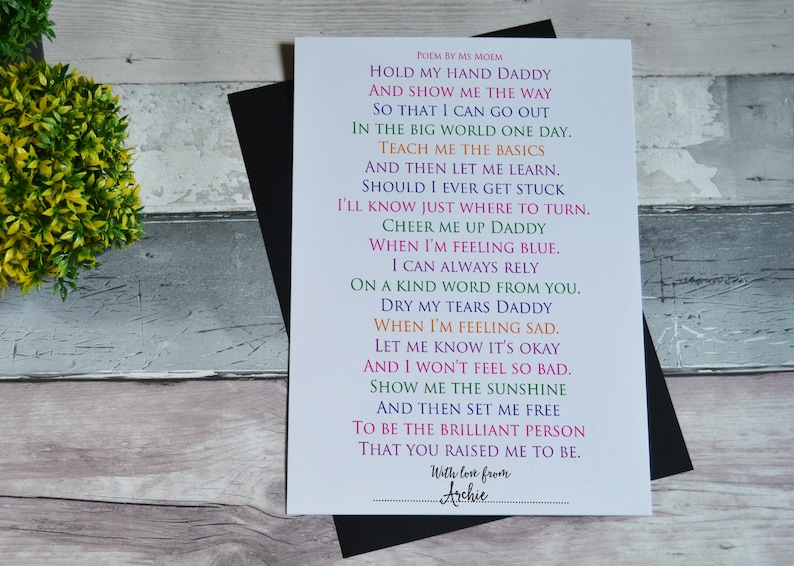 Poem By Ms Moem
Hold my hand Daddy
And show me the way
So that I can go out
In the big world one day.
Teach me the basics
And then let me learn.
Should I ever get stuck
I'll know just where to turn.
Cheer me up Daddy
When I'm feeling blue.
I can always rely
On a kind word from you.
Dry my tears Daddy
When I'm feeling sad.
Let me know it's okay
And I won't feel so bad.
Show me the sunshine
And then set me free
To be the brilliant person
That you raised me to be.
With love from
Archie